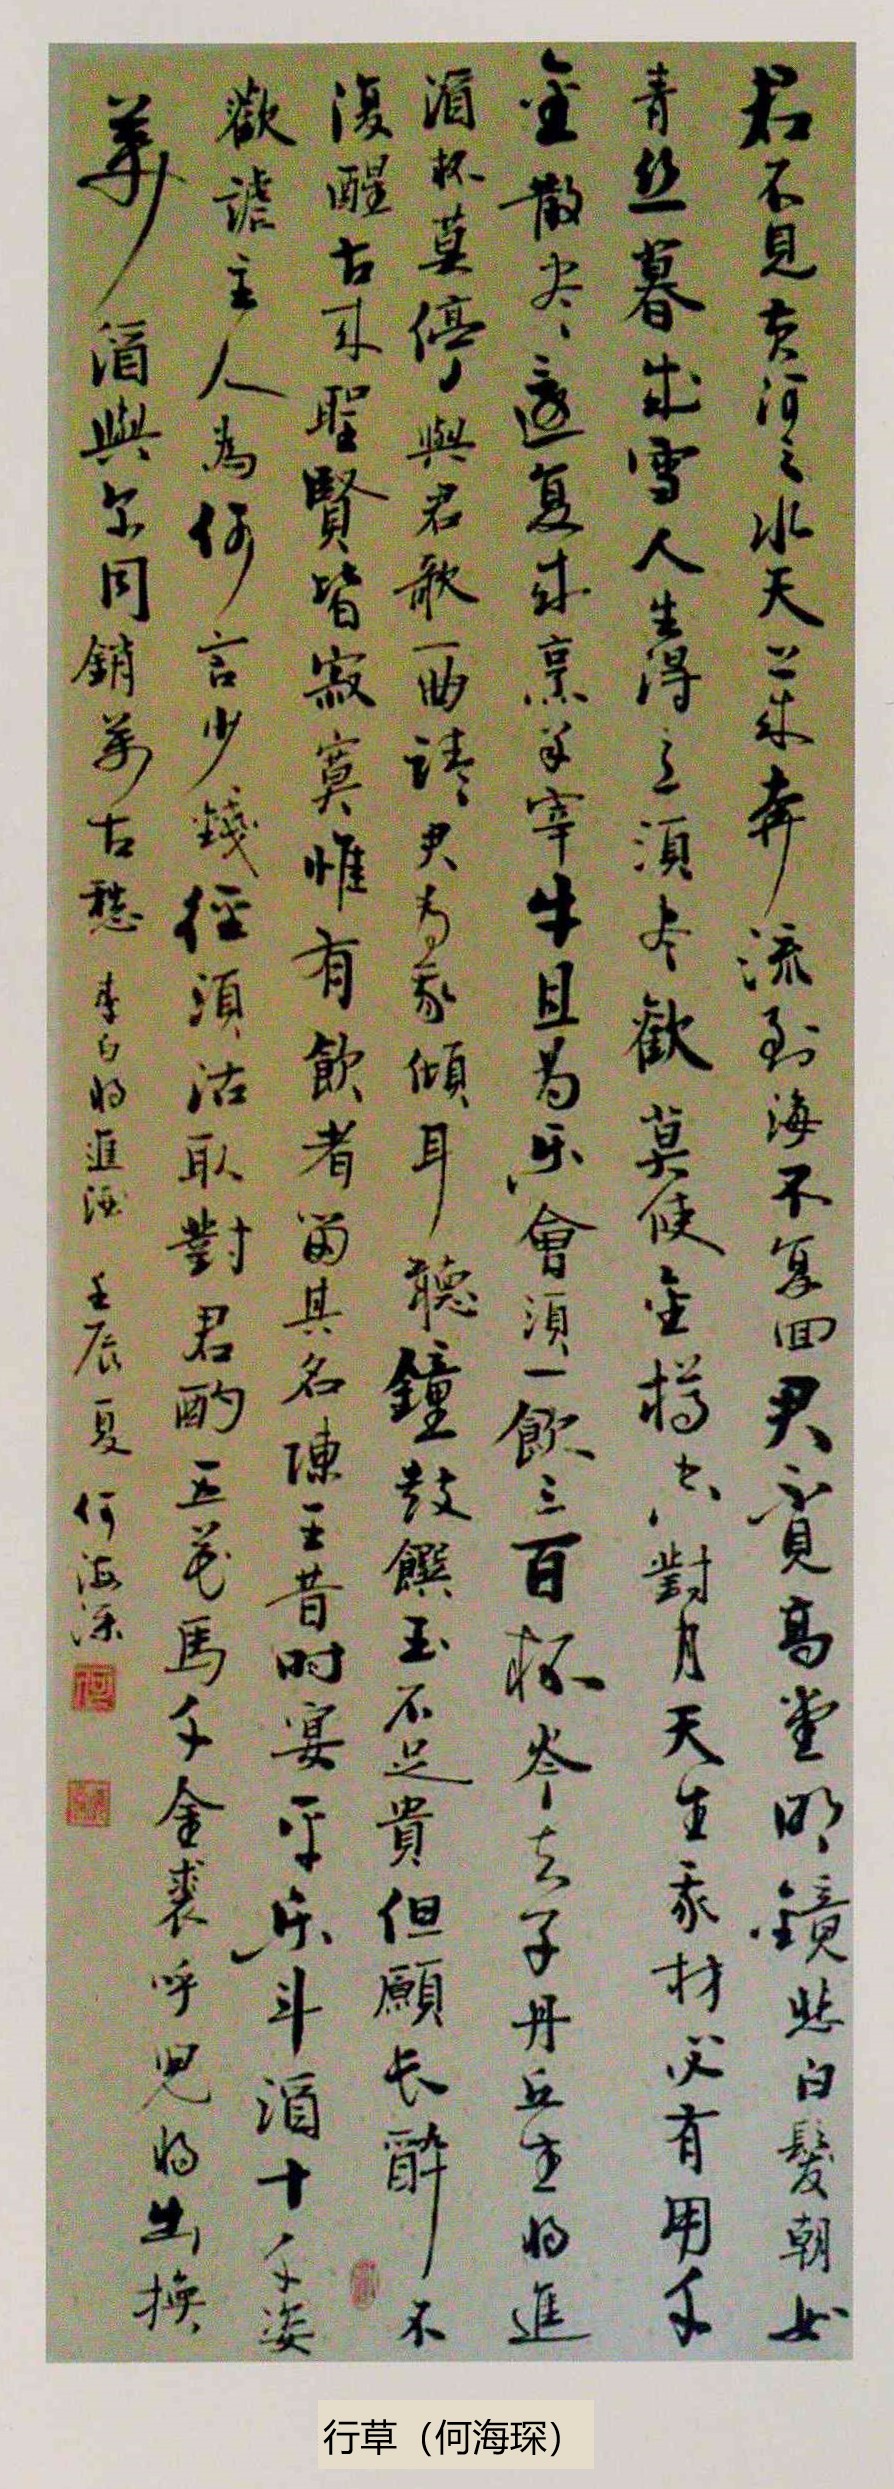 君不見黄河之水天上来奔流到海不复回君不見高堂明鏡悲白髮朝如
青丝暮成雪人生得意須尽歡莫使金樽空對月天生我材必有用千
金散尽還复来烹羊宰牛且为乐會須一飲三百杯岑夫子丹丘生将進
酒杯莫停與君歌一曲請君为我傾耳聽鐘鼓饌玉不足貴但願长醉不
復醒古来聖賢皆寂寞惟有飲者留其名陳王昔时宴平乐斗酒十千恣
歡謔主人為何言少錢徑須沽取對君酌五花馬千金裘呼兒将出換
美酒與尔同銷萬古愁 李白将進酒 壬辰夏 何海琛
何
行草（何海琛）